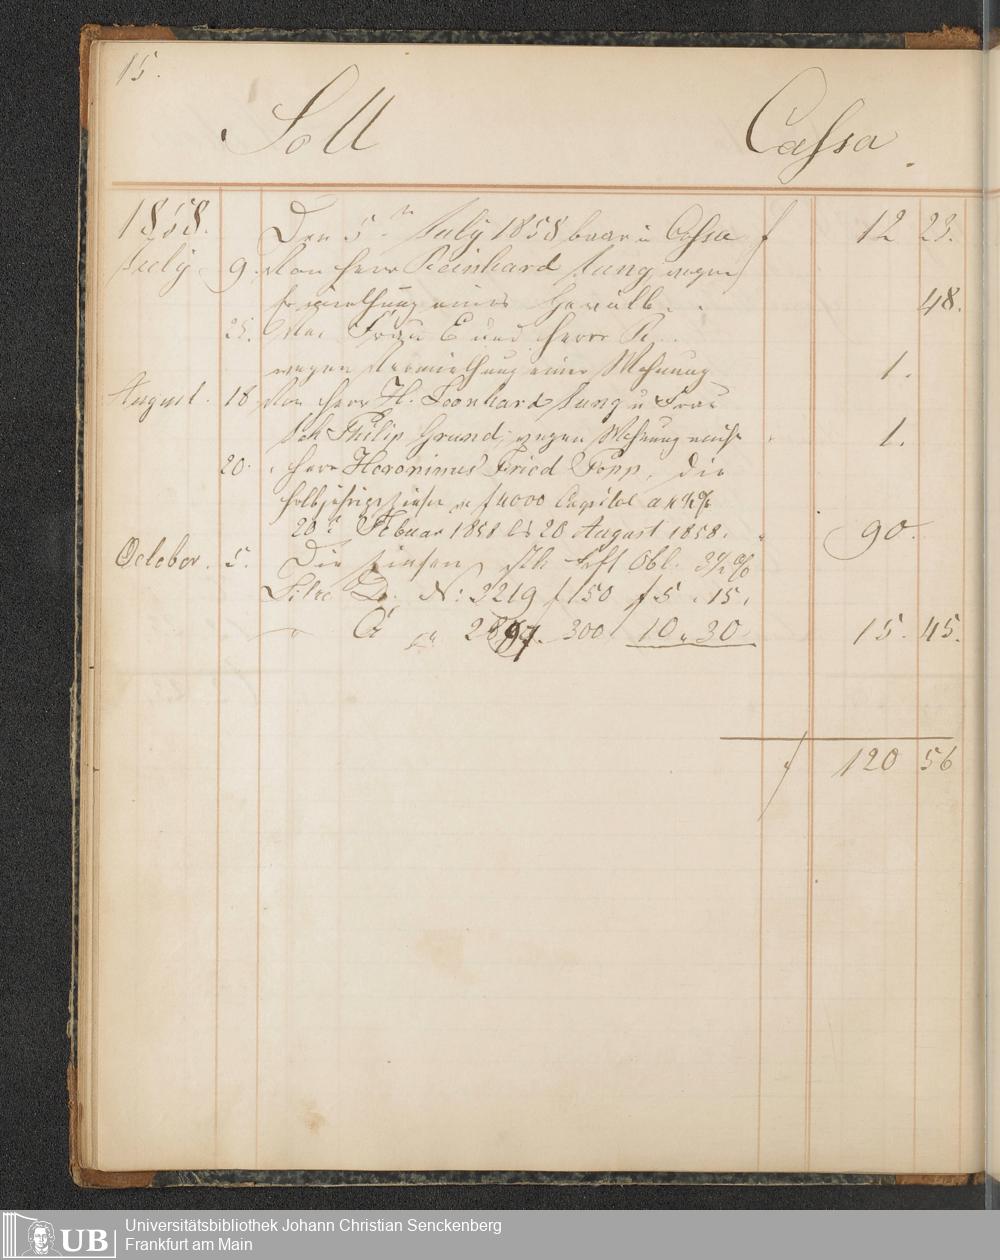 15.
Soll Cassa
1858. Den 5ten July 1858 baar in Cassa f 12 23.
July 9. Von Herr Reinhard Jung wegen
Vermiethung eines Gewölb. 48.
25. Von Frau E und Herr R.
wegen Vermiethung einer Wohnung 1.
August. 18 Von Herr H. Leonhard Jung u Frau
Joh Philip Grund, wegen Wohnung 1.
20. Herr Heronimus Fried Popp, die
halbjährige Zinsen v f 4000 Capital a 4½ %
20t Februar 1858 bis 20 August 1858. 90.
October. 5. Die Zinsen Obl. 3½ %
Litra D. N: 2219 f 150 f 5 . 15.
" C " 97 300 10 " 30 15. 45.
f 120 56
Universitätsbibliothek Johann Christian Senckenberg
Frankfurt am Main
UB